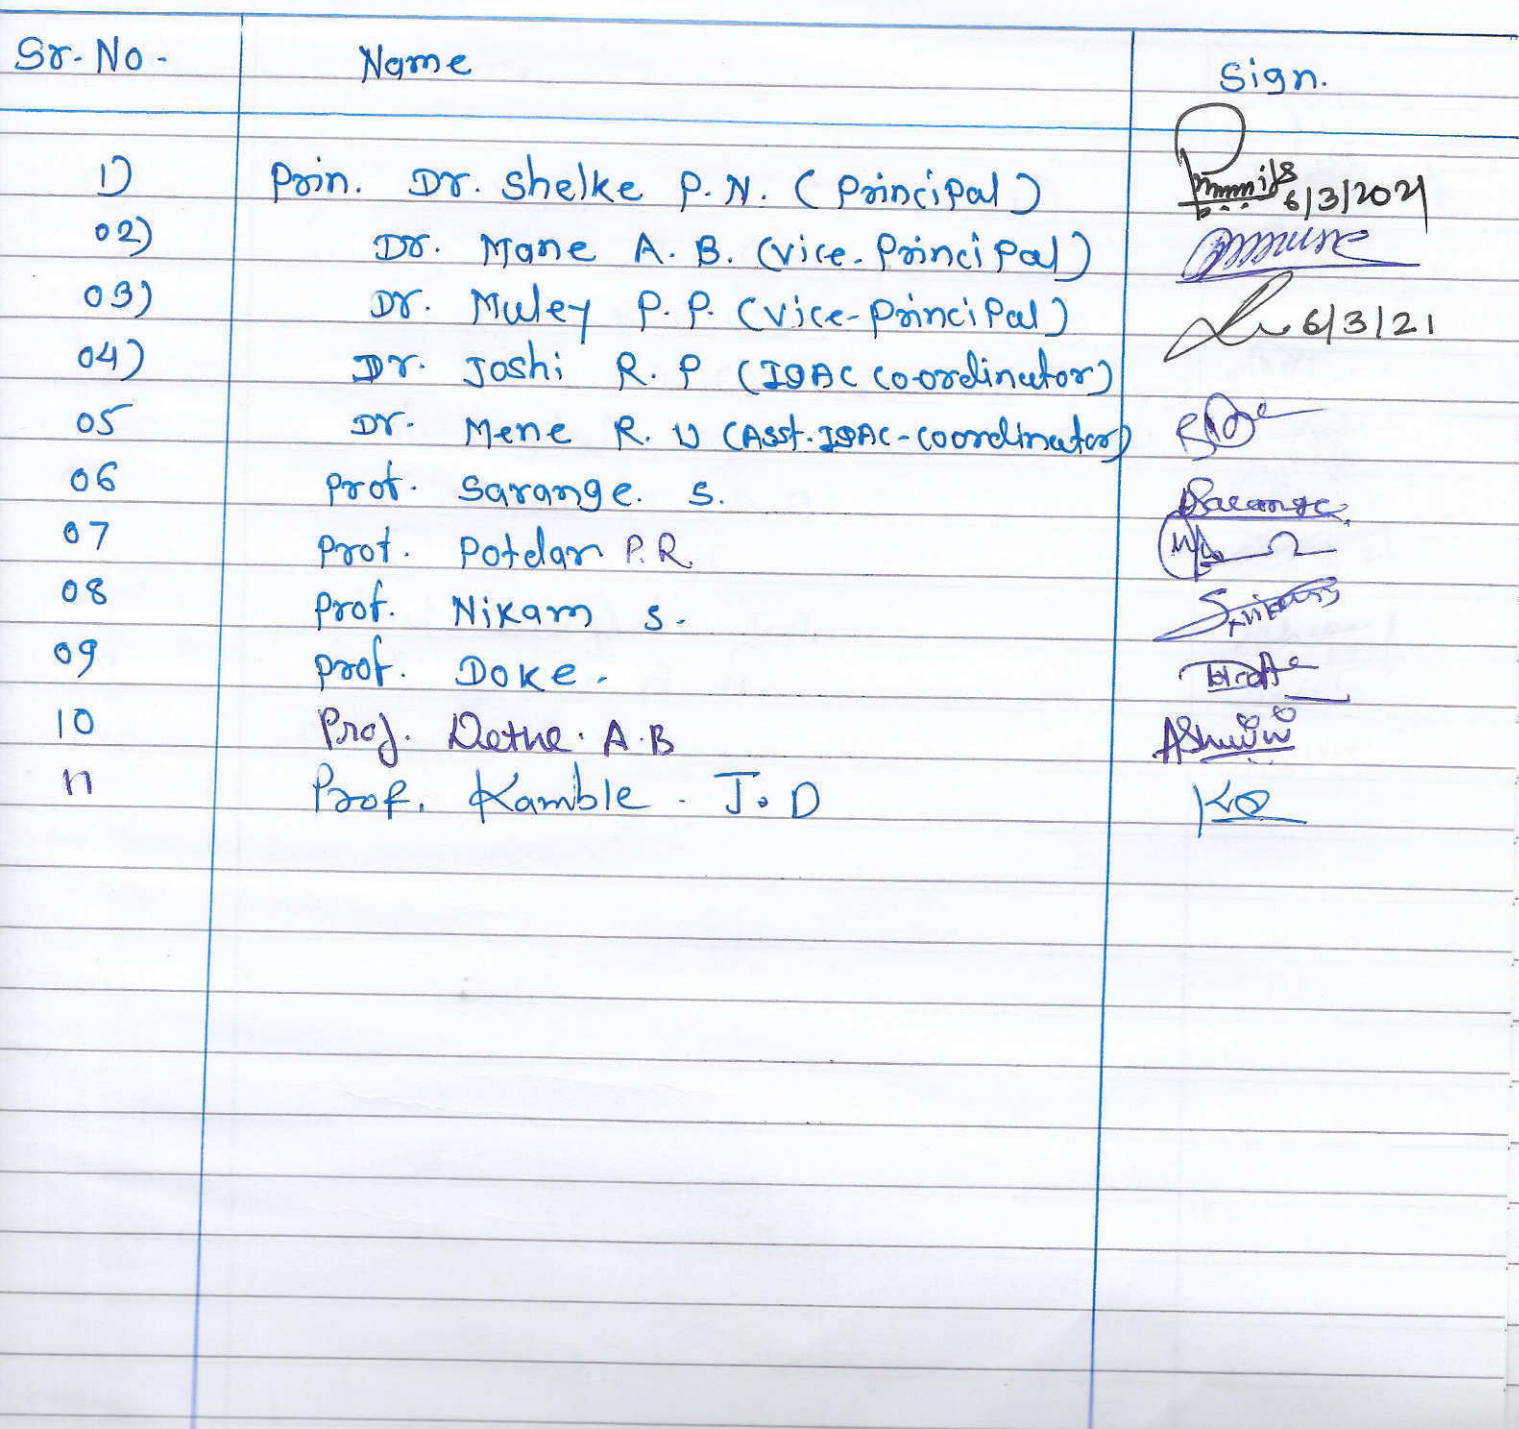 Sr. No. Name Sign.
1) Prin. Dr. Shelke P. N. (Principal) 6/3/2021
02) Dr. Mane A. B. (Vice-Principal)
03) Dr. Muley P. P. (Vice-Principal) 6/3/21
04) Dr. Joshi R. P (IQAC Co-ordinator)
05 Dr. Mene R. U (Asst. IQAC-Coordinator)
06 Prof. Sarange. S. Sarange
07 Prof. Potdar P.R.
08 Prof. Nikam S.
09 Prof. Doke.
10 Prof. Dethe. A.B
11 Prof. Kamble. J. D